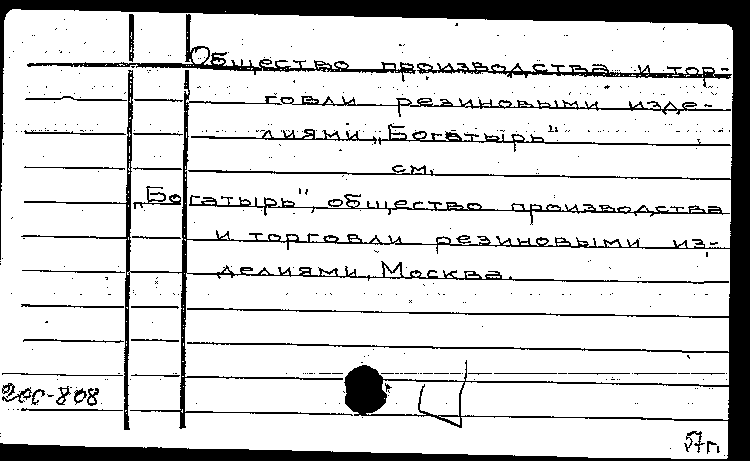 Общество производства и тор-
говли резиновыми изде-
лиями „Богатырь"
см.
„Богатырь", общество производства
и торговли резиновыми из-
делиями, Москва.
200-808
57г.